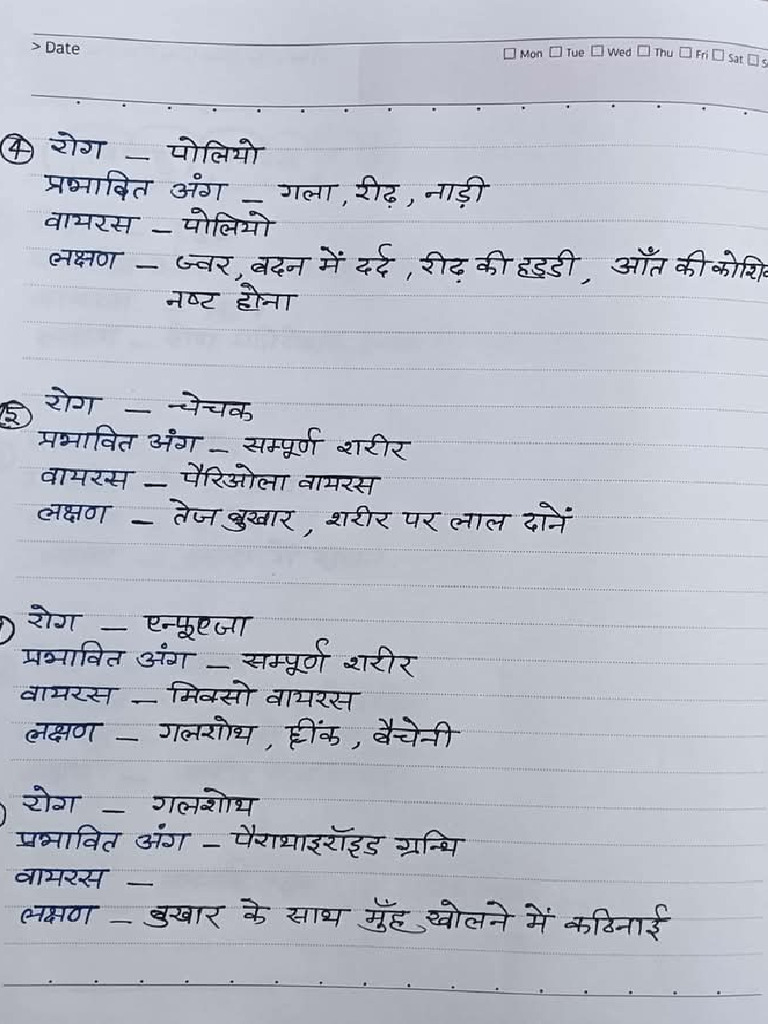 > Date
Mon Tue Wed Thu Fri Sat S
④ रोग – पोलियो
प्रभावित अंग – गला, रीढ़, नाड़ी
वायरस – पोलियो
लक्षण – ज्वर, बदन में दर्द, रीढ़ की हड्डी, आँत की
नष्ट होना
⑤ रोग – चेचक
प्रभावित अंग – सम्पूर्ण शरीर
वायरस – पैरिओला वायरस
लक्षण – तेज बुखार, शरीर पर लाल दानें
रोग – एन्फूएजा
प्रभावित अंग – सम्पूर्ण शरीर
वायरस – मिक्सो वायरस
लक्षण – गलशोथ, छींक, बैचेनी
रोग – गलशोथ
प्रभावित अंग – पैराथाइरॉइड ग्रन्थि
वायरस –
लक्षण – बुखार के साथ मुँह खोलने में कठिनाई